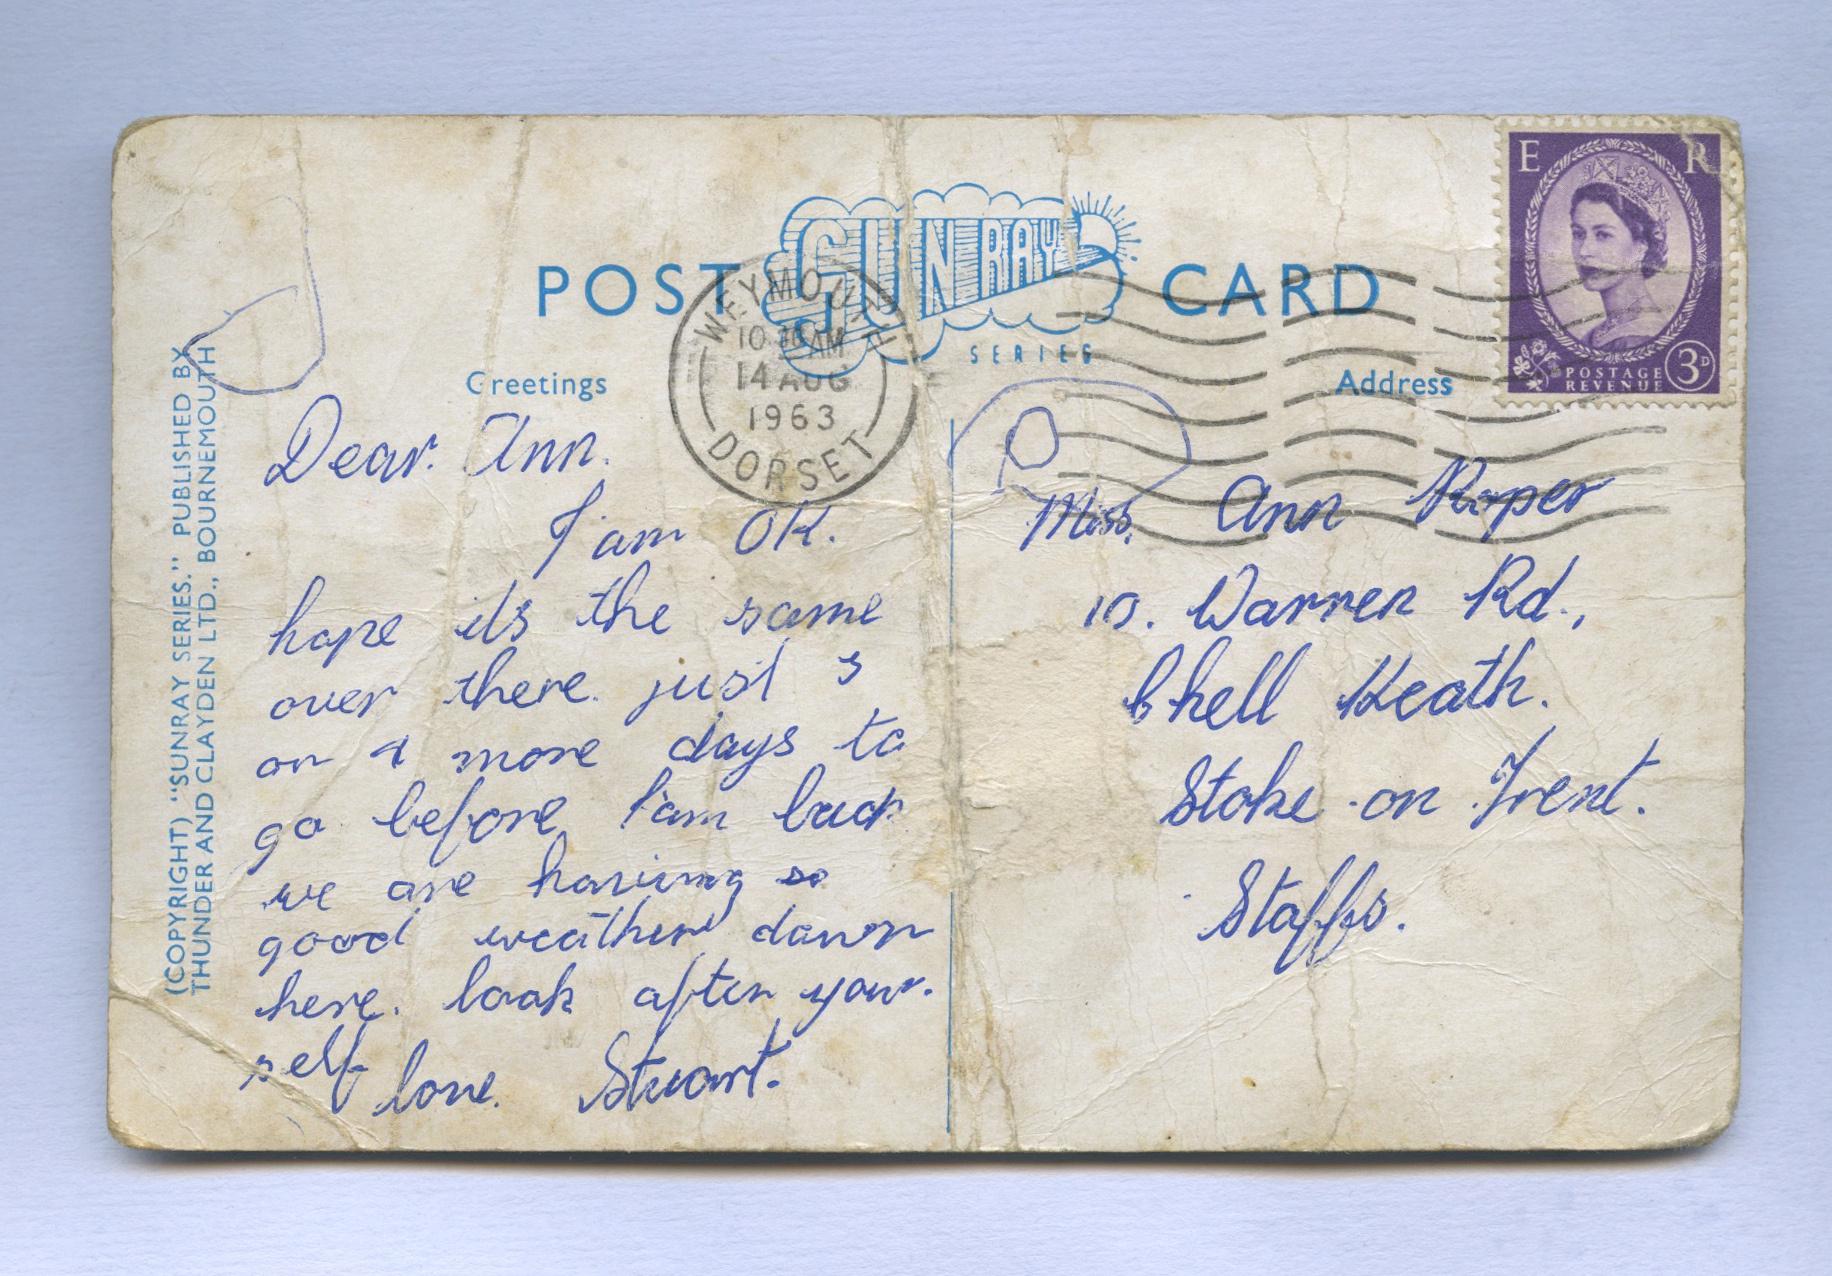 POST SUN RAY CARD
SERIES
WEYMOUTH
10 30 AM
14 AUG
1963
DORSET
E R
POSTAGE
REVENUE
3D
Greetings
Dear. Ann.
I'am OK.
hope its the same
over there. just 3
or 4 more days to
go before I'am back
we are having so
good weather down
here. look after your.
self
love. Stuart.
Address
Miss. Ann Roper
10. Warren Rd.,
Chell Heath.
Stoke-on Trent.
Staffs.
(COPYRIGHT) "SUNRAY SERIES." PUBLISHED BY
THUNDER AND CLAYDEN LTD., BOURNEMOUTH